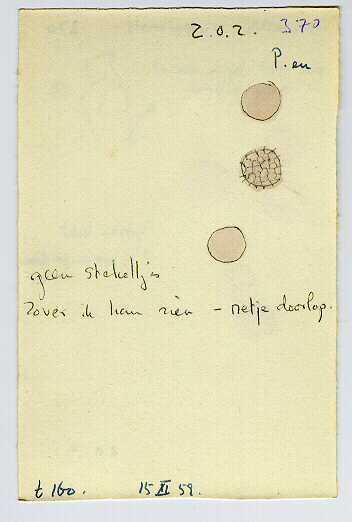 2.0.2. 370
P. en
geen stekeltjes
Zover ik kan zien - netje doorlop.
t 160. 15 XI 59.